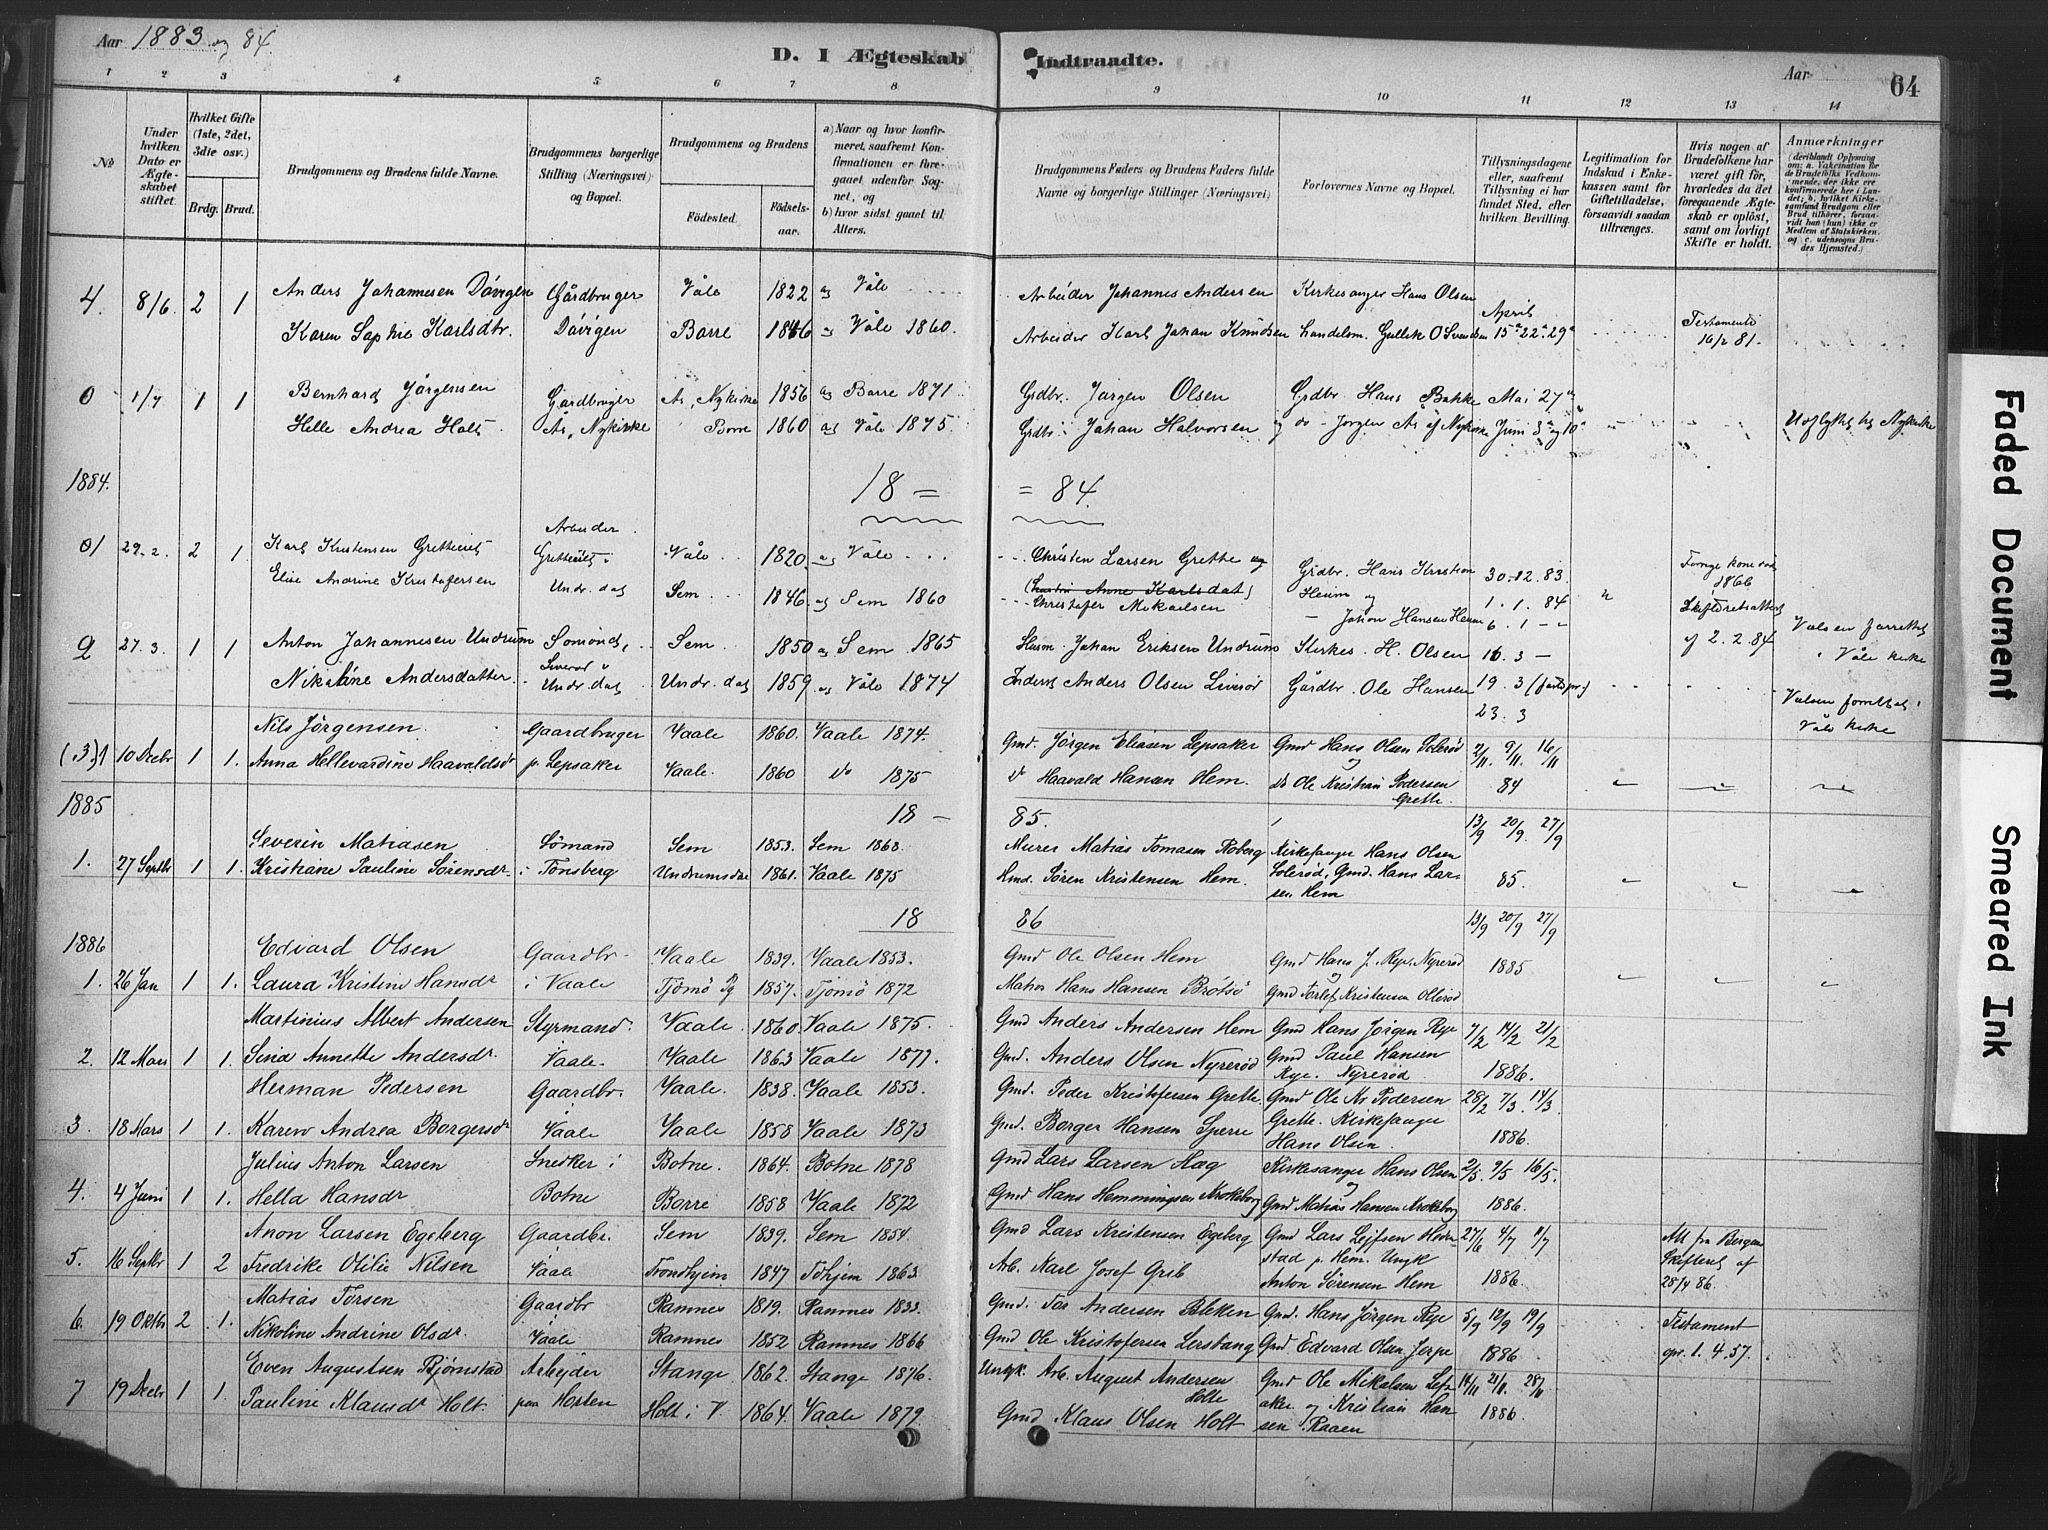 Aar 1883 og 84.
D. I Ægteskab Indtraadte.
Aar
64
1 2 3 4 5 6 7 8 9 10 11 12 13 14
№
Under hvilken Dato er Ægteskabet stiftet.
Hvilket Gifte (1ste, 2det, 3die osv.)
Brdg. Brud.
Brudgommens og Brudens fulde Navne.
Brudgommens borgerlige Stilling (Næringsvei) og Bopæl.
Brudgommens og Brudens
Födested. Födselsaar.
a) Naar og hvor konfirmeret, saafremt Konfirmationen er foregaaet udenfor Sognet, og
b) hvor sidst gaaet til Alters.
Brudgommens Faders og Brudens Faders fulde Navne og borgerlige Stillinger (Næringsvei)
Forlovernes Navne og Bopæl.
Tillysningsdagene eller, saafremt Tillysning ei har fundet Sted, efter hvilken Bevilling.
Legitimation for Indskud i Enkekassen samt for Giftetilladelse, forsaavidt saadan tiltrænges.
Hvis nogen af Brudefolkene har været gift, for hvorledes da det foregaaende Ægteskab er oplöst, samt om lovligt Skifte er holdt.
Anmærkninger
4. 8/6 2 1 Anders Johannesen Dövigen Gårdbruger Våle 1822 Våle Arbeider Johannes Andersen Kirkesanger Hans Olsen April
Karen Sophie Karlsdtr. Dövigen Borre 1846 Våle 1860. Arbeider Karl Johan Knudsen Landelsm. Gullik O Svendsen 15 22 29 Testamente 16/2 81.
0 1/7 1 1 Bernhard Jörgensen Gårdbruger Ås, Nykirke 1856 Borre 1871 Grdbr. Jörgen Olsen Grdbr. Hans Bakke Mai 27
Helle Andrea Holt Ås, Nykirke Borre 1860 Våle 1875. Grdbr. Johan Halvorsen og do - Jörgen Ås af Nykirke Juni 3 og 10 Udflyttet til Nykirke
1884. 18 = = 84.
01 29.2. 2 1 Karl Kristensen Gretteeiet Arbeider Gretteeiet Våle 1820 Våle Christen Larsen Grette Grdbr. Hans Kristian 30.12.83.
Elise Andrine Kristofersen Undr.dal Sem 1846 Sem 1860 Christofer Mikaelsen Heum og Johan Hansen Heum 1.1.84 6.1 Forrige kone död 1866 Skifteretsattest af 2.2.84
2 27.3. 1 1 Anton Johannesen Undrum Sömand, Sem 1850 Sem 1865 Husm. Johan Eriksen Undrum Kirkes. H. Olsen 16.3 Vielsen forrettet i Våle kirke
Nikoline Andersdatter Liverød Undr.dal Undr.dal 1859 Våle 1874 Inderst Anders Olsen Liverör Gårdbr. Ole Hansen 19.3 23.3 Vielsen forrettet i Våle kirke
(3) 1 10 Decbr 1 1. Nils Jörgensen Gaardbruger Vaale 1860. Vaale 1874. Gmd. Jörgen Eliasen Lepsaker Gmd Hans Olsen Solerød 2/11. 9/11. 16/11
Anna Hellevardine Haavaldsdr p. Lepsaker Vaale. 1860 do 1875 do Haavald Hansen Hem. do Ole Kristian Pedersen Grette. 84
1885 18 – 85.
1. 27 Septbr 1 1. Severin Matiasen Sömand Sem 1853. Sem 1868 Murer Matias Tomasen Roberg Kirkesanger Hans Olsen 13/9 20/9. 27/9
Kristiane Pauline Sørensdr. i Tönsberg Undrumsdal 1861. Vaale 1875 Hmd. Sören Kristensen Hem. Solerød, Gmd. Hans Larsen Hem 85.
1886 18 86
1. 26 Jan 1 1. Edvard Olsen Gaardbr. Vaale 1839. Vaale 1853. Gmd Ole Olsen Hem Gmd Hans J. Rye, Nyrerød 13/9 20/9 27/9
Laura Kristine Hansdr i Vaale Tjömö Pg 1857. Tjömö 1872 Matros Hans Hansen Brötsö Gmd Torlef Kristensen Ollerød 1885
2. 12 Mars 1 1. Martinius Albert Andersen Styrmand. Vaale 1860. Vaale 1875. Gmd Anders Andersen Hem Gmd Hans Jörgen Rye 7/2 14/2 21/2
Sina Annette Andersdr. Vaale. Vaale 1863 Vaale 1877. Gmd. Anders Olsen Nyrerød Gmd Paul Hansen Rye. Nyrerød 1886.
3. 18 Mars 1 1. Herman Pedersen Gaardbr. Vaale. 1838. Vaale 1853. Gmd. Peder Kristofersen Grette Gmd Ole Kr Pedersen 28/2 7/3. 14/3.
Karen Andrea Borgersdr i Vaale Vaale 1858 Vaale 1873 Gmd. Borger Hansen Sjerre Grette. Kirkesanger Hans Olsen. 1886.
4. 4 Juni 1 1. Julius Anton Larsen Snedker i Botne. 1864. Botne 1878 Gmd Lars Larsen Hag Kirkesanger Hans Olsen 2/5 9/5 16/5.
Hella Hansdr Botne Borre 1858 Vaale 1872 Gmd Hans Hemmingsen Krokeborg og Gmd Matias Hansen Krokeborg 1886.
5. 16 Septbr 1 2 Anon Larsen Egeberg Gaardbr. Sem 1839. Sem 1854. Gmd Lars Kristensen Egeberg Gmd Lars Lejfsen Hedenstad p. Hem. Ungk 27/6 4/7 11/7 Att fra Bergens Skifteret af
Fredrike Otilie Nilsen Vaale Trondhjem 1847 Tdhjem 1863. Arb. Karl Josef Grib Anton Sørensen Hem 1886. 28/4 86.
6. 19 Oktbr 2 1. Matias Torsen Gaardbr Ramnes 1819. Ramnes 1833. Gmd. Tor Andersen Bleken Gmd. Hans Jörgen Rye 5/9 12/9 19/9 Testament
Nikoline Andrine Olsdr. i Vaale Ramnes 1852 Ramnes 1866 Gmd Ole Kristofersen Lersbang Gmd Edvard Olsen Jerpe 1886. opr. 1.4.57.
7 19 Decbr 1 1. Even Augustsen Bjørnstad Arbejder Stange 1862. Stange 1876. Ungk. Arb. August Andersen Holte Gmd Ole Mikalsen Lefsaker og Kristian Hansen Raaen 14/11 21/11. 28/11
Pauline Klausdr Holt. paa Horten Holt i V 1864. Vaale 1879. Gmd Klaus Olsen Holt 1886.
Faded Document
Smeared Ink